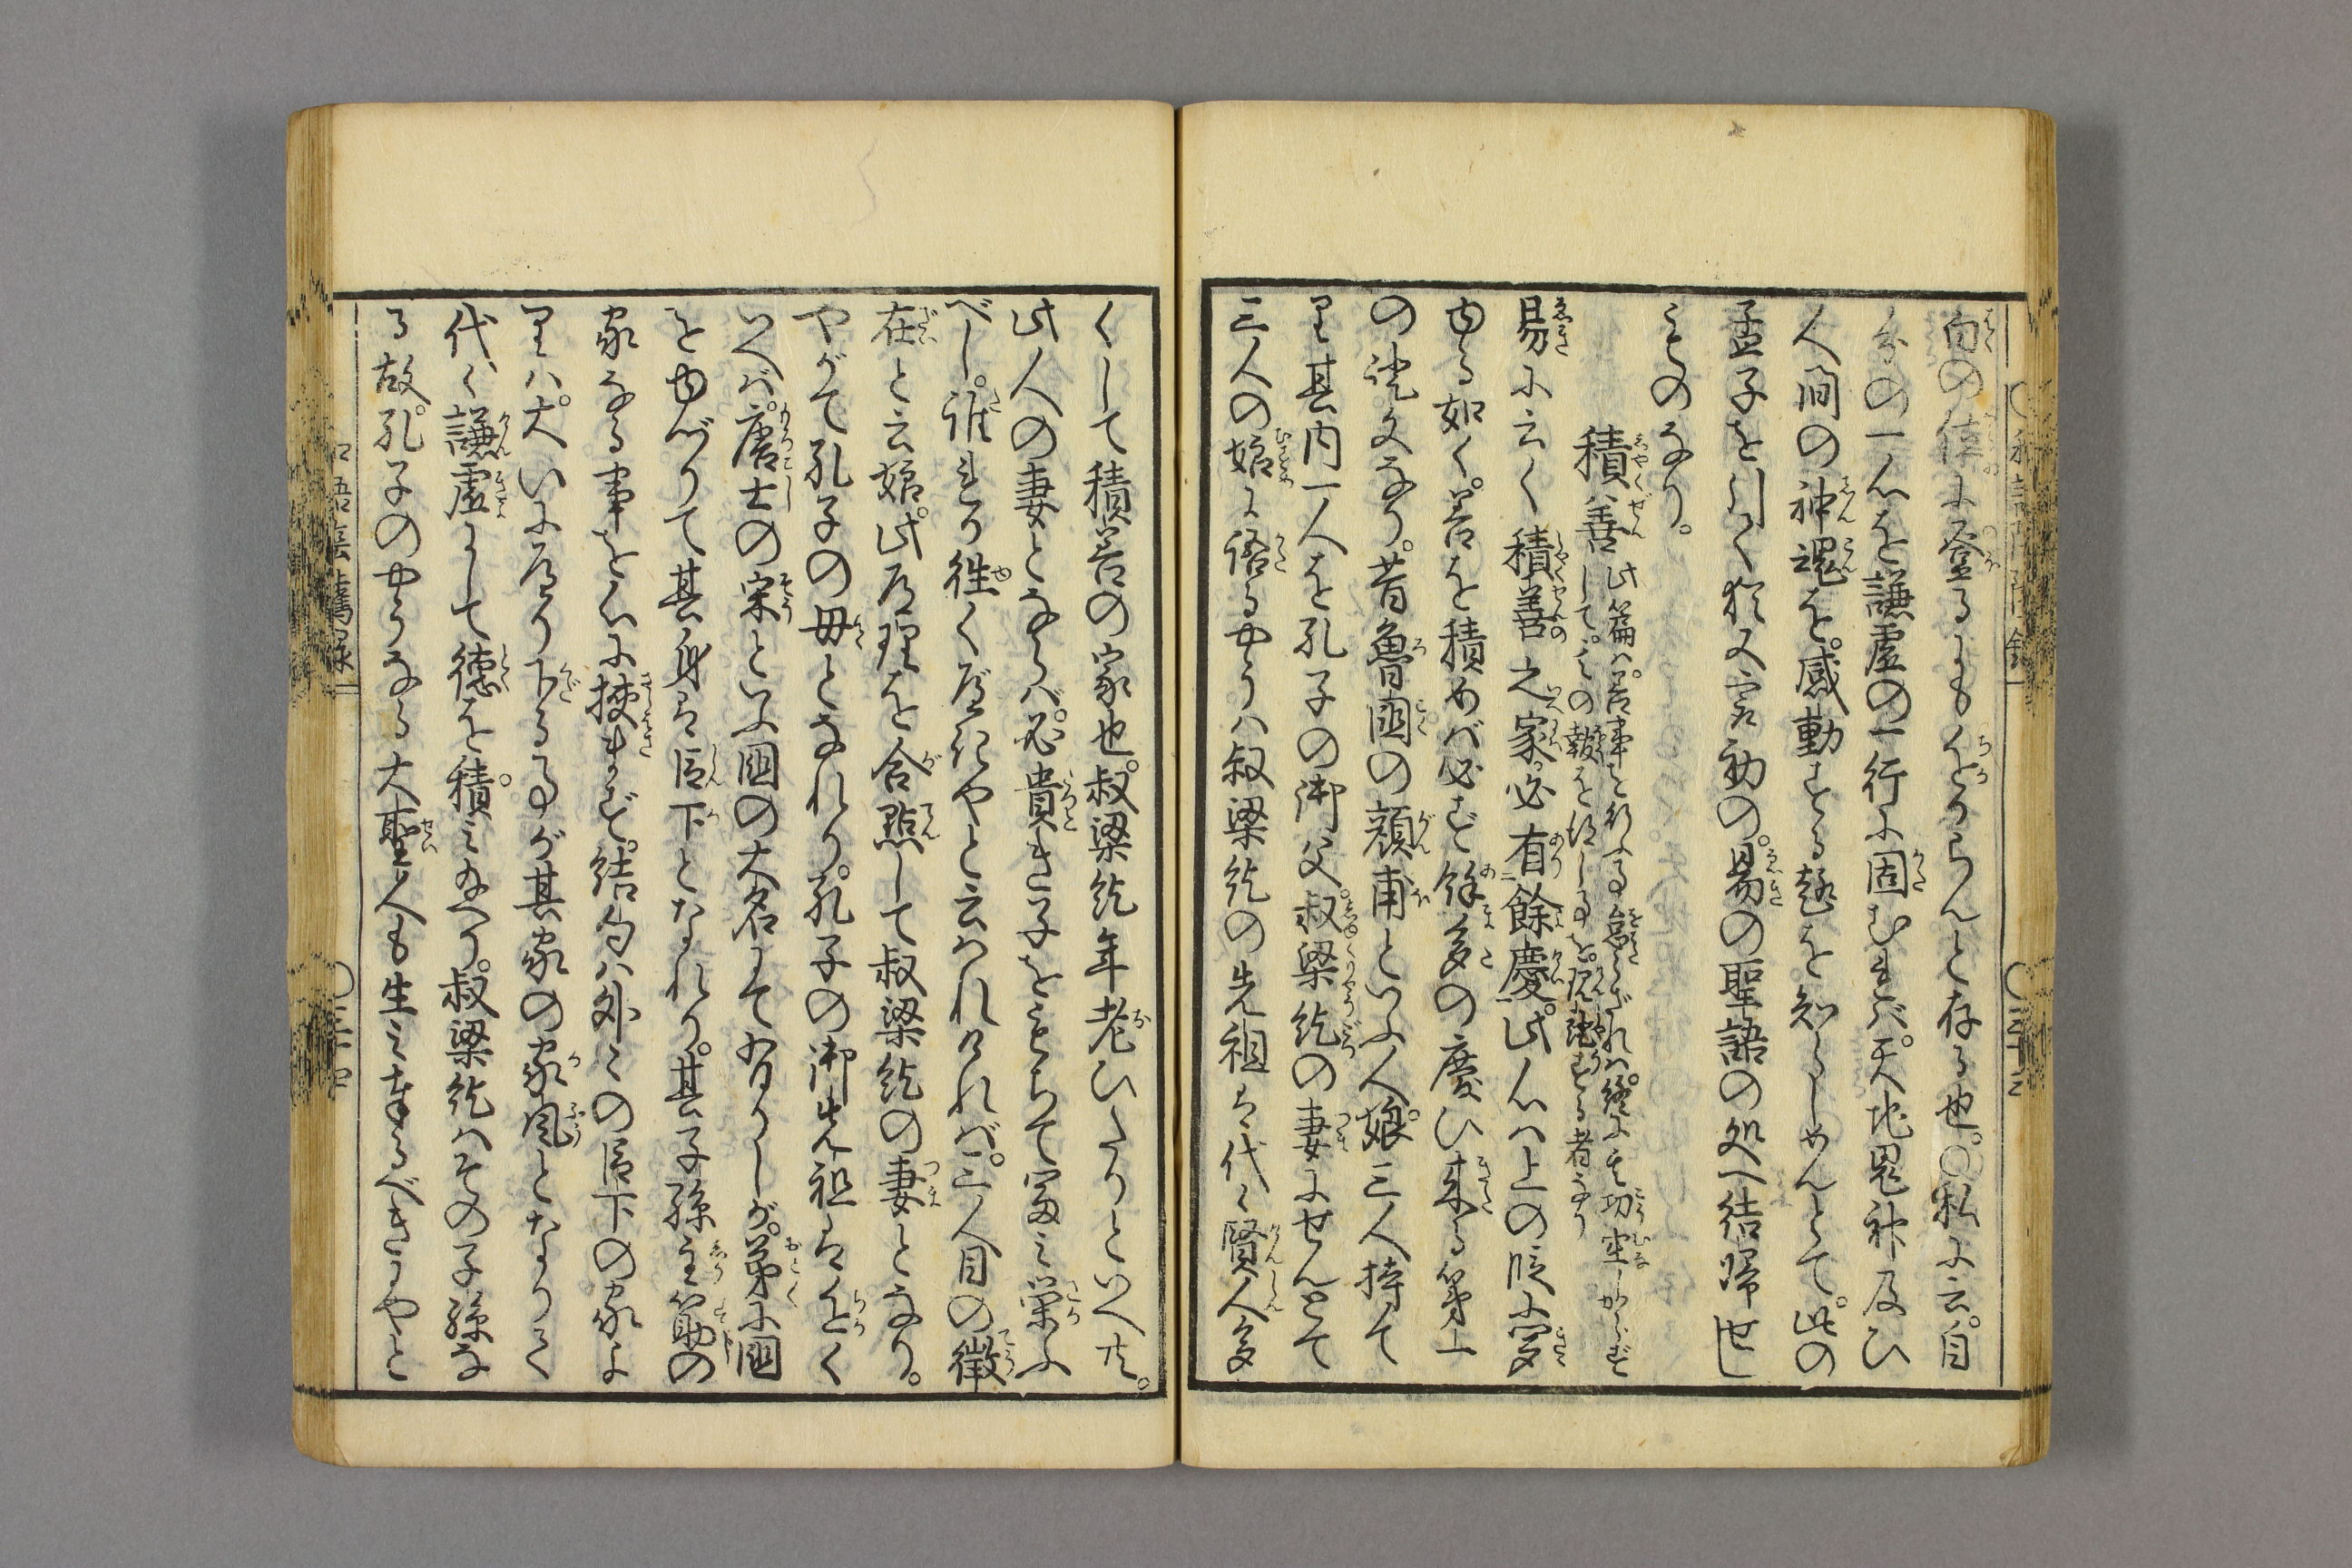 向の位に登るにもちかからんと存る也。○私に云。自
分の一心を謙虚の一行に固むれば。天地鬼神及ひ
人間の神魂を。感動する趣を知らしめんとて。此の
孟子を引く。猶又家勤の。易の聖語の処へ結帰せし
ものなり。
積善
此篇ハ。善事を行ふる怠らざれハ。終に其功空しからず
して。その報を得しるを。証する者なり
易に云く積善之家必有餘慶。此心ハ上の段に家
ゆる如く。善を積めば必ず餘多の慶ひ来る第一
の證文なり。昔魯国の顔甫といふ人。娘三人持て
其内一人を孔子の御父。叔梁紇の妻にせんとて
三人の娘に語るやうハ叔梁紇の先祖は代々賢人多
くして積善の家也。叔梁紇年老ひたりといへ共。
此人の妻とならば。必貴き子をもちて富み栄ふ
べし。誰れか往く存たやと云われけれバ。三人目の徴
在と云娘。此道理を合點して叔梁紇の妻となり。
やがて孔子の母となれり。孔子の御先祖はちかく
いへば。唐土の宋といふ国の大名にて有りしが。弟に国
をゆづりて其身は臣下となれり。其子孫主筋の
家なる事を心に挟まず。結句ハ外々の臣下の家よ
りハ。大いにへり下るるが其家の家風となりて
代々謙虚にして徳を積みなへり。叔梁紇ハその子孫な
る故。孔子のやうなる大聖人も生み奉るべきにやと